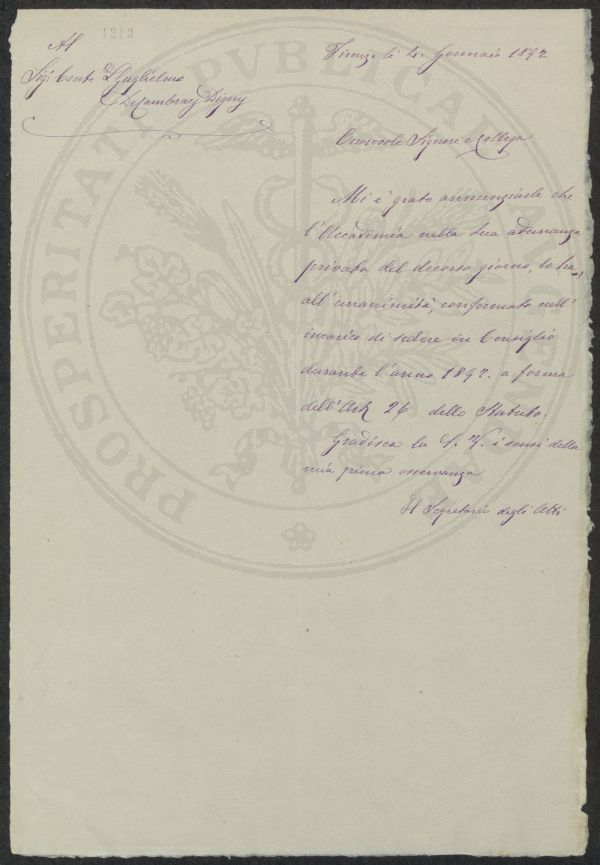 1213
Al
Sigr Conte Guglielmo
De Cambray Digny
Firenze li 4. Gennaio 1892
Onorevole Signore e Collega
Mi è grato annunziarle che
l'Accademia nella sua adunanza
privata del decorso giorno, lo ha,
all'unanimità, confermato nell'
incarico di sedere in Consiglio
durante l'anno 1892. a forma
dell'Art 26 dello Statuto.
Gradisca la S. V. i sensi della
mia piena osservanza
Il Segretario degli Atti
PROSPERITATI PVBLICAE